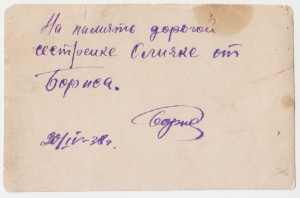 На память дорогой
сестренке от
Бориса.
Борис
20/IV-38г.